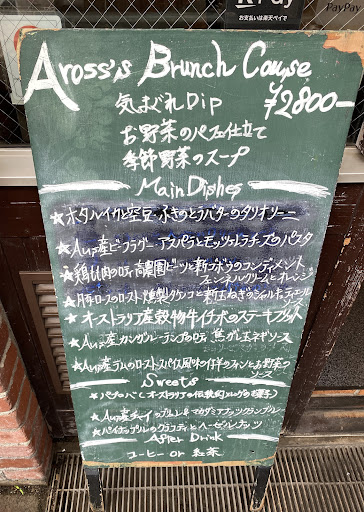 Pay
お支払いは楽天ペイで
PayPay
Aross's Brunch Course
¥2800-
気まぐれDip
お野菜のパフェ仕立て
季節野菜のスープ
Main Dishes
★ホタルイカと空豆 ふきのとうバターのタリオリーニ
★Aus産ビーフラグー アスパラとモッツァレラチーズのパスタ
★鶏もも肉のロティ 農園ビーツと新ゴボウのコンディメント
フェンネルクリームとオレンジ
★豚ロースのロースト 燻製タケノコと新玉ねぎの
ソース
★オーストラリア産穀物牛イチボのステーキフリット
★Aus産カンガルーテンダーのロティ 焦がし玉ネギソース
★Aus産ラムのロースト スパイス風味の仔羊の とお野菜の
ソース
Sweets
★パブロバ オーストラリアの伝統的メレンゲのお菓子
★Aus産 マカダミアナッツクランブル
★パイナップルの とヘーゼルナッツ
After Drink
コーヒー or 紅茶